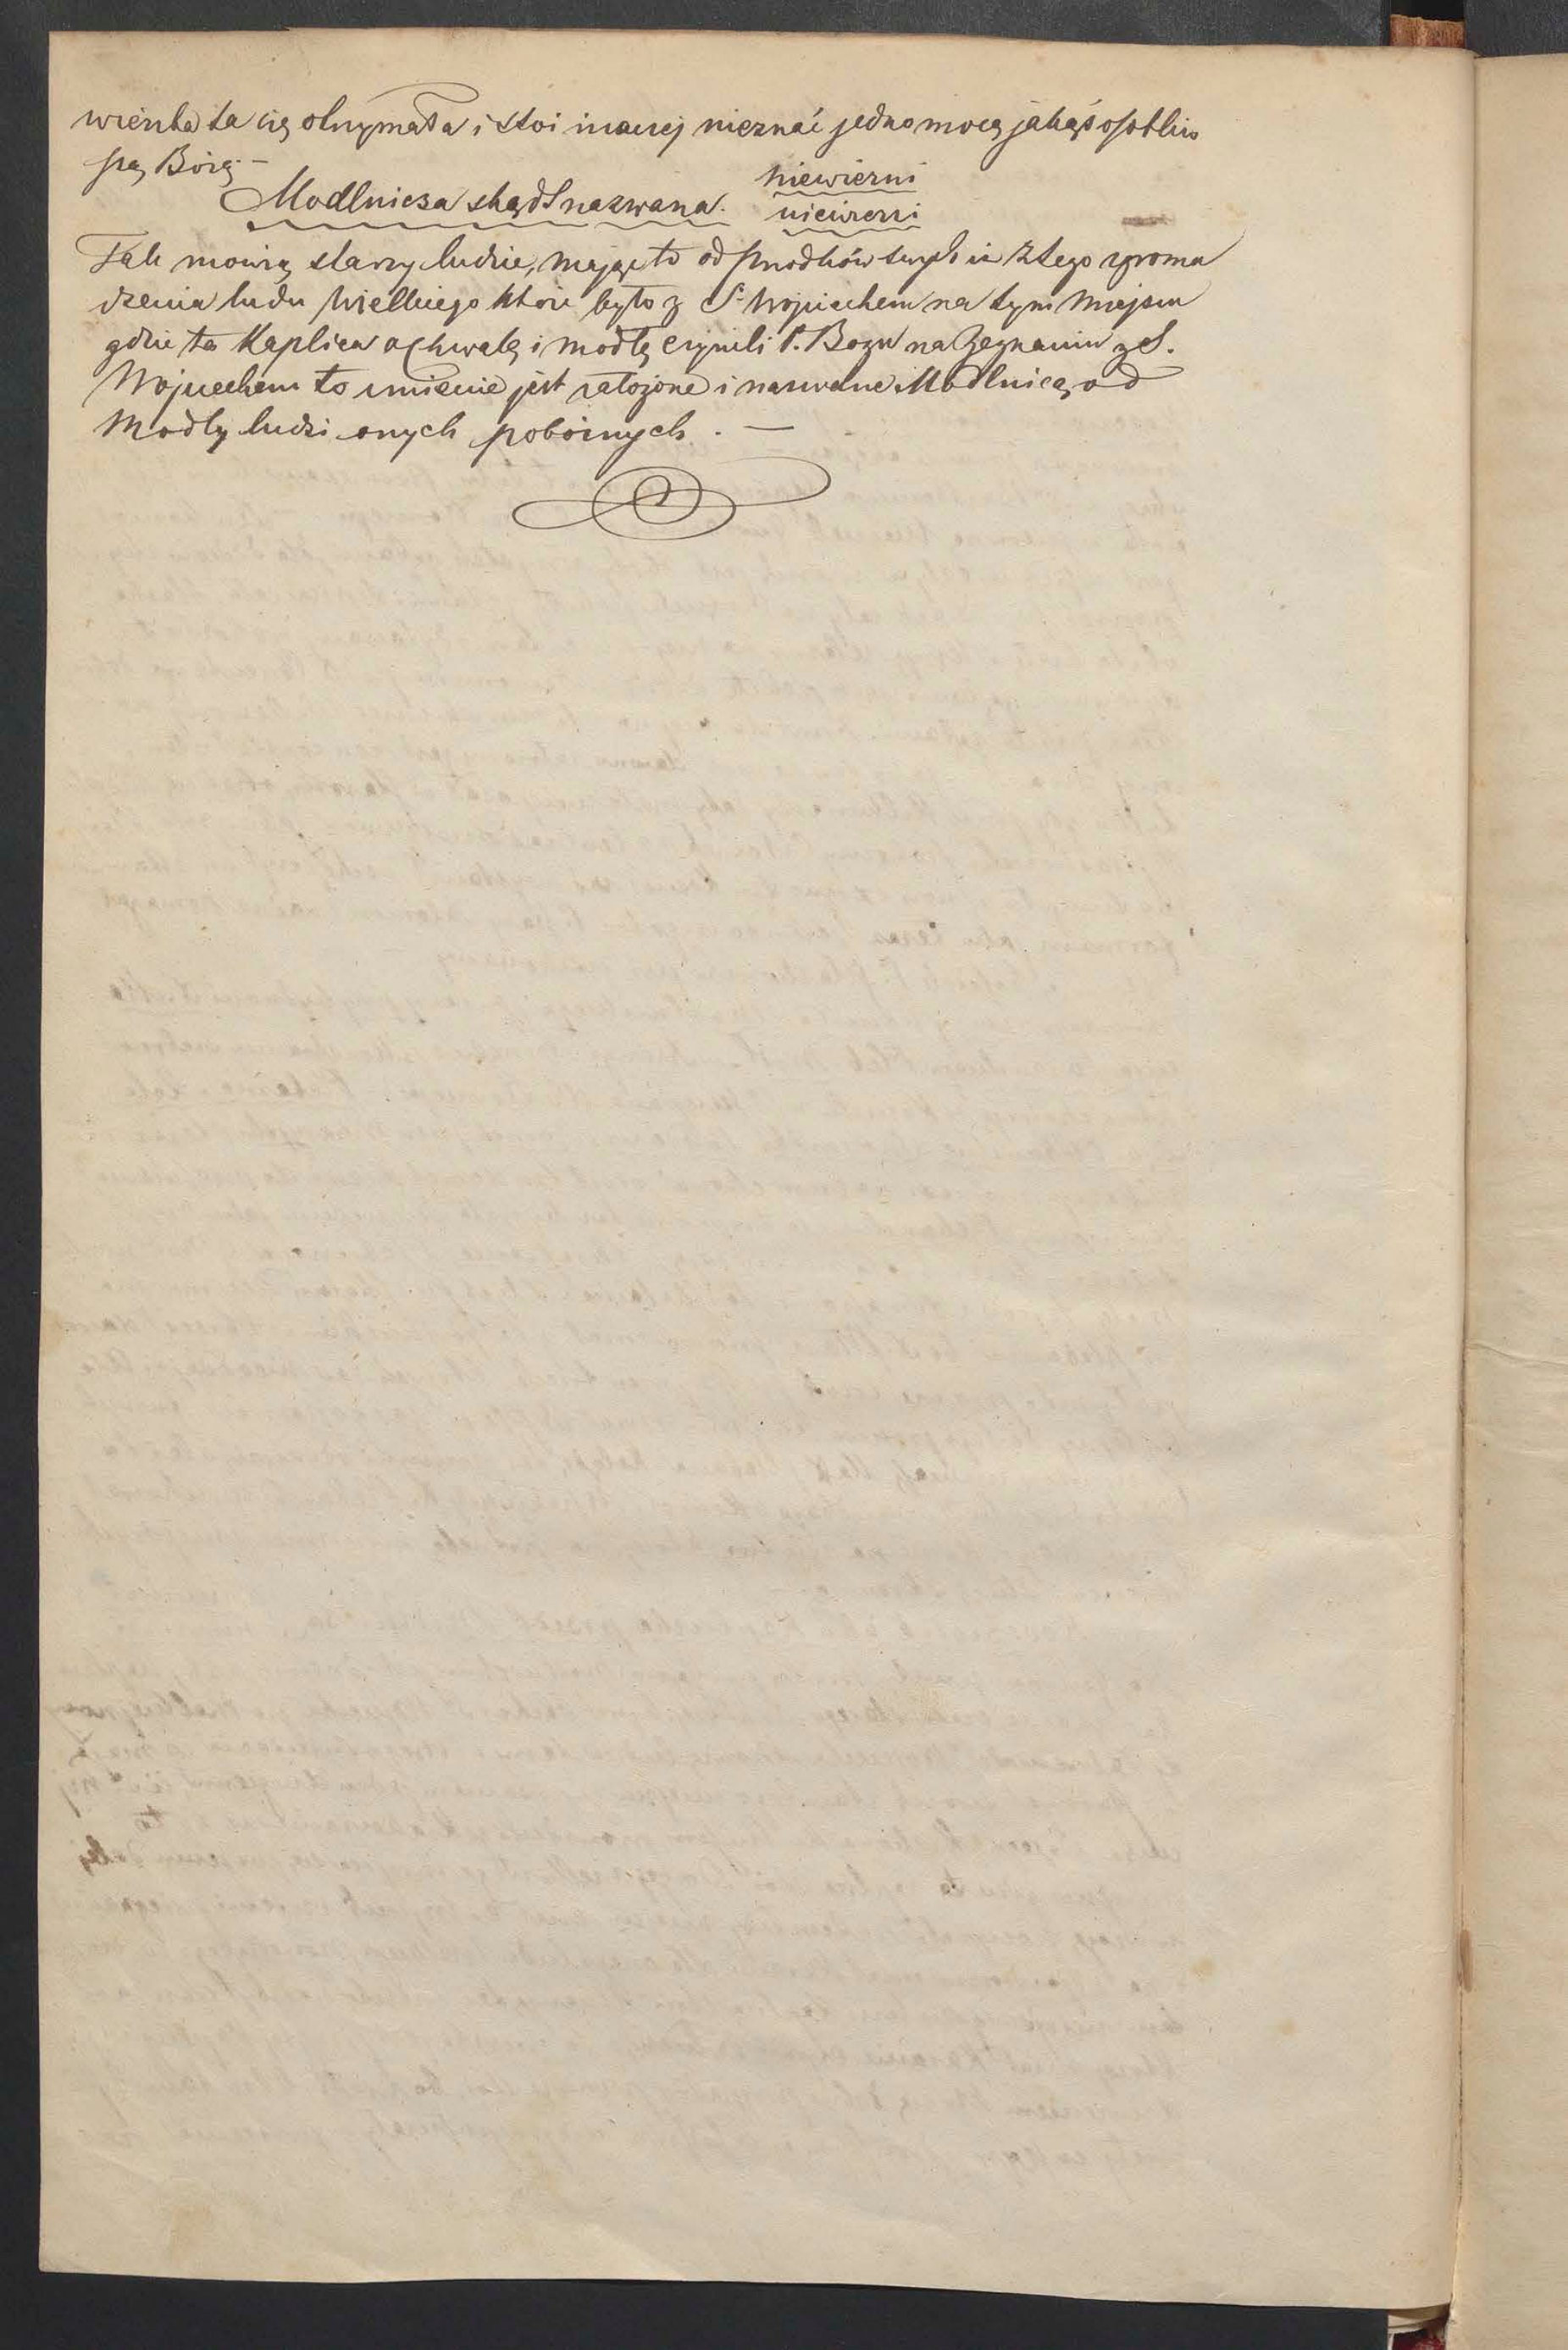 wienka ta się otrzymała i stoi inaczej nieznać jedno mocą jakąś osobliw
szą Bożą –
niewierni
Modlnicza skądś nazwana. niewierni
Tak mówią starzy ludzie, mając to od przodków swych iż z tego zgroma
dzenia ludu Wielkiego które było z S. Wojciechem na tym miejscu
gdzie ta Kaplica a chwałę i modłę czynili P. Bogu na Żegnaniu z S.
Wojciechem to imienie jest założone i nazwane Modlnicą od
Modły ludzi onych pobożnych. —